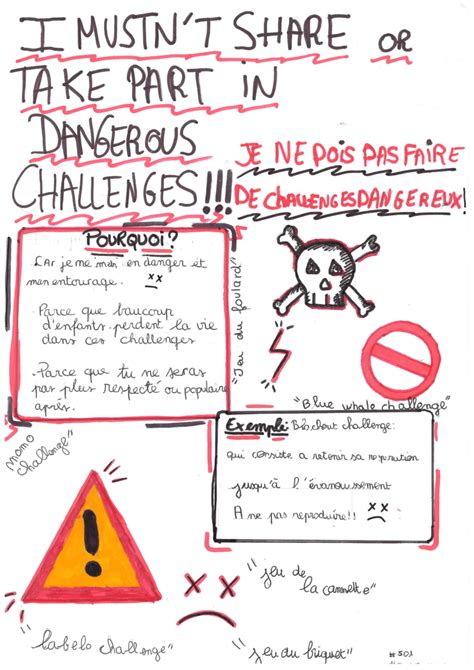 I MUSTN'T SHARE OR
TAKE PART IN
DANGEROUS
CHALLENGES!!!
JE NE DOIS PAS FAIRE
DE CHALLENGES DANGEREUX!
POURQUOI?
CAr je me mets en danger et
mon entourage.
. Parce que beaucoup
d'enfants perdent la vie
dans ces challenges
. Parce que tu ne seras
pas plus respecté ou populaire
après.
"Jeu du foulard"
"Blue whale challenge"
momo
challenge"
Exemple: challenge:
qui consiste a retenir sa respiration
jusqu'à l'évanouissement
A ne pas reproduire!!
"jeu de
la cannette"
"labelo challenge"
"jeu du briquet"
#501